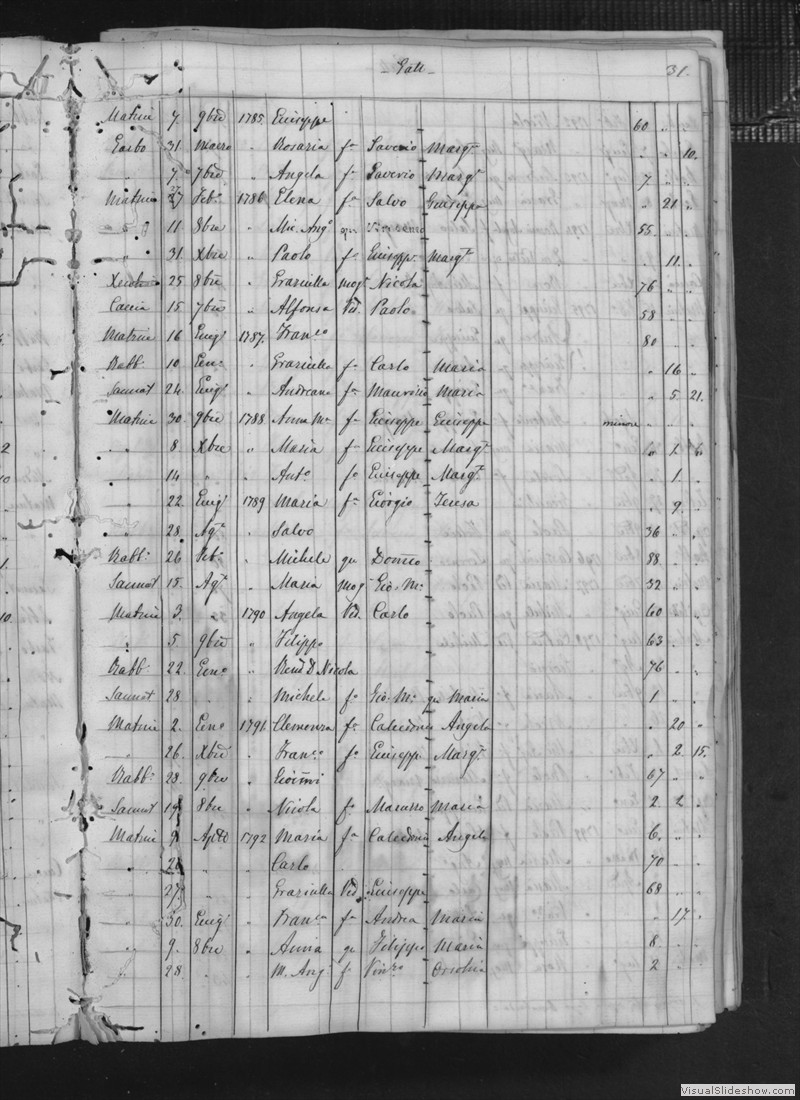 - Gall - 31.
Matrice 7 9bre 1785 Giuseppe 60 " "
Garbo 31 Marzo " Rosaria fa Saverio Margta " " 10
" 7 7bre " Angela fa Saverio Margta 7 " "
Matrice 27 Febo 1786 Elena fa Salvo Giuseppa " 21 "
" 11 8bre " Mic. Ango qm Vincenzo 55 " "
" 31 Xbre " Paolo fo Giuseppe Margta " 11 "
25 8bre " Graziella mog Nicola 76 " "
Caccia 15 7bre " Alfonsa Vid. Paolo 58 " "
Matrice 16 Giugo 1787 Franco 80 " "
Rabbo 10 Geno " Graziella fa Carlo Maria " 16 "
Sannot 24 Giugo " Andreana fa Maurizio Maria " 5 21
Matrice 30 9bre 1788 Anna Ma fa Giuseppe Giuseppa minore " " "
" 8 Xbre " Maria fa Giuseppe Margta " 1 6
" 14 " " Anto fo Giuseppe Margta " 1 "
" 22 Giugo 1789 Maria fa Giorgio Teresa " 9 "
" 28 Ago " Salvo 36 " "
Rabbo 26 Febo " Michele qm Domco 88 " "
Sannot 15 Ago " Maria mog Gio. Ma 32 " "
Matrice 3 " 1790 Angela Vid. Carlo 60 " "
" 5 9bre " Filippo 63 " "
Rabbo 22 Geno " Revd D Nicola 76 " "
Sannot 28 " " Michele fo Gio. Ma qm Maria 1 " "
Matrice 2 Geno 1791 Clemenza fa Calcedonio Angela " 20 "
" 26 Xbre " Franca fa Giuseppe Margta " 2 15
Rabbo 28 9bre " Giovni 67 " "
Sannot 19 8bre " Nicola fo Maria 2 2 "
Matrice 9 1792 Maria fa Calcedonio Angela 6 " "
" " " Carlo 70 " "
" 27 " " Graziella Vid Giuseppe 68 " "
" 30 Giugo " Franca fa Andrea Maria " 17 "
" 9 8bre " Anna qm Filippo Maria 8 " "
" 28 " " M. Ango f Vinzo 2 " "
VisualSlideshow.com